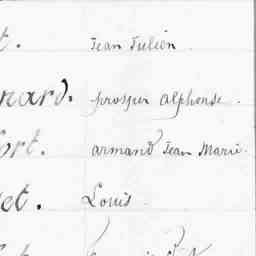 t. Jean Julien
nard. prosper alphonse.
ort. armand Jean Marie.
et. Louis